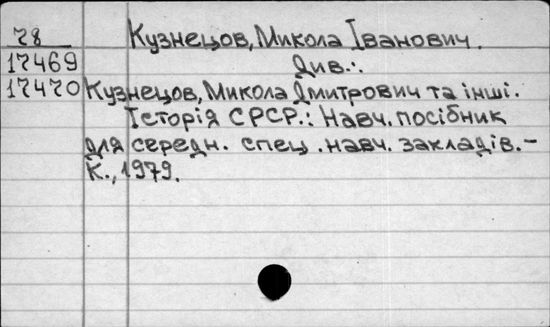 78 Кузнецов, Микола Іванович.
17469 Див.:
17470 Кузнецов, Микола Дмитрович та інші.
Історія СРСР.: Навч. посібник
для середн. спец. навч. закладів.-
К., 1979.